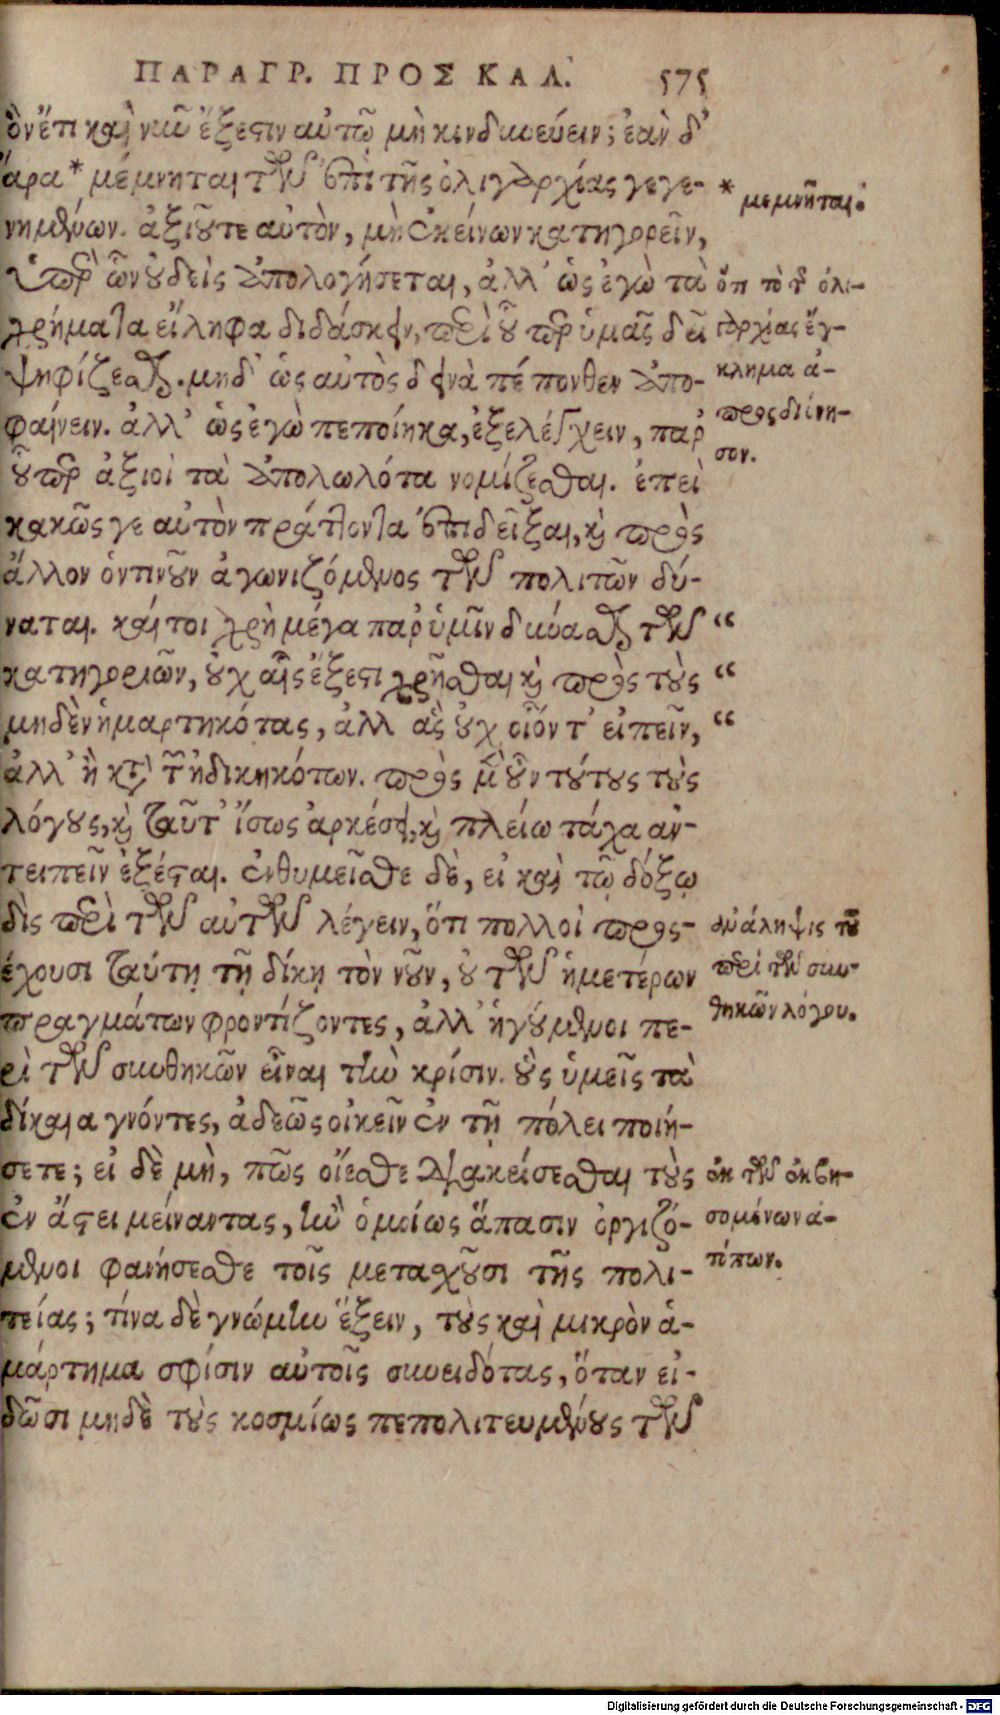 ΠΑΡΑΓΡ. ΠΡΟΣ ΚΑΛ. 575
ὃν ἔτι καὶ νῦν ἔξεστιν αὐτῷ μὴ κινδυνεύειν; ἐὰν δ'
ἄρα * μέμνηται τῶν ἐπὶ τῆς ὀλιγαρχίας γεγε-
νημένων. ἀξιοῦτε αὐτὸν, μὴ ἐκείνων κατηγορεῖν,
ὑπὲρ ὧν οὐδεὶς ἀπολογήσεται, ἀλλ' ὡς ἐγὼ τὰ
χρήματα εἴληφα διδάσκειν, περὶ οὗ περ ὑμᾶς δεῖ
ψηφίζεσθαι. μηδ' ὡς αὐτὸς δεινὰ πέπονθεν ἀπο-
φαίνειν. ἀλλ' ὡς ἐγὼ πεποίηκα, ἐξελέγχειν, παρ'
οὗπερ ἀξιοῖ τὰ ἀπολωλότα νομίζεσθαι. ἐπεὶ
κακῶς γε αὐτὸν πράττοντα ἐπιδεῖξαι, καὶ πρὸς
ἄλλον ὁντινοῦν ἀγωνιζόμενος τῶν πολιτῶν δύ-
ναται. καίτοι χρὴ μέγα παρ' ὑμῖν δύνασθαι τῶν “
κατηγοριῶν, οὐχ αἷς ἔξεστι χρῆσθαι καὶ πρὸς τοὺς “
μηδὲν ἡμαρτηκότας, ἀλλ' ἃς οὐχ οἷόν τ' εἰπεῖν, “
ἀλλ' ἢ κατὰ τῶν ἠδικηκότων. πρὸς μὲν οὖν τούτους τοὺς
λόγους, καὶ ταῦτ' ἴσως ἀρκέσει, καὶ πλείω τάχα ἀν-
τειπεῖν ἐξέσται. ἐνθυμεῖσθε δὲ, εἰ καί τῳ δόξω
δὶς περὶ τῶν αὐτῶν λέγειν, ὅτι πολλοὶ προσ-
έχουσι ταύτῃ τῇ δίκῃ τὸν νοῦν, οὐ τῶν ἡμετέρων
πραγμάτων φροντίζοντες, ἀλλ' ἡγούμενοι πε-
ρὶ τῶν συνθηκῶν εἶναι τὴν κρίσιν. οὓς ὑμεῖς τὰ
δίκαια γνόντες, ἀδεῶς οἰκεῖν ἐν τῇ πόλει ποιή-
σετε; εἰ δὲ μὴ, πῶς οἴεσθε διακείσεσθαι τοὺς
ἐν ἄστει μείναντας, ἢν ὁμοίως ἅπασιν ὀργιζό-
μενοι φανήσεσθε τοῖς μετασχοῦσι τῆς πολι-
τείας; τίνα δὲ γνώμην ἕξειν, τοὺς καὶ μικρὸν ἁ-
μάρτημα σφίσιν αὐτοῖς συνειδότας, ὅταν εἰ-
δῶσι μηδὲ τοὺς κοσμίως πεπολιτευμένους τῶν
* μεμνῆται.
ὅτι τὸ τῆς ὀλι-
γαρχίας ἔγ-
κλημα ἀ-
προσδιόνη-
σον.
ἀνάληψις τοῦ
περὶ τῶν συν-
θηκῶν λόγου.
ἐκ τῶν ἐκβη-
σομένων ἀ-
τόπων.
Digitalisierung gefördert durch die Deutsche Forschungsgemeinschaft - DFG